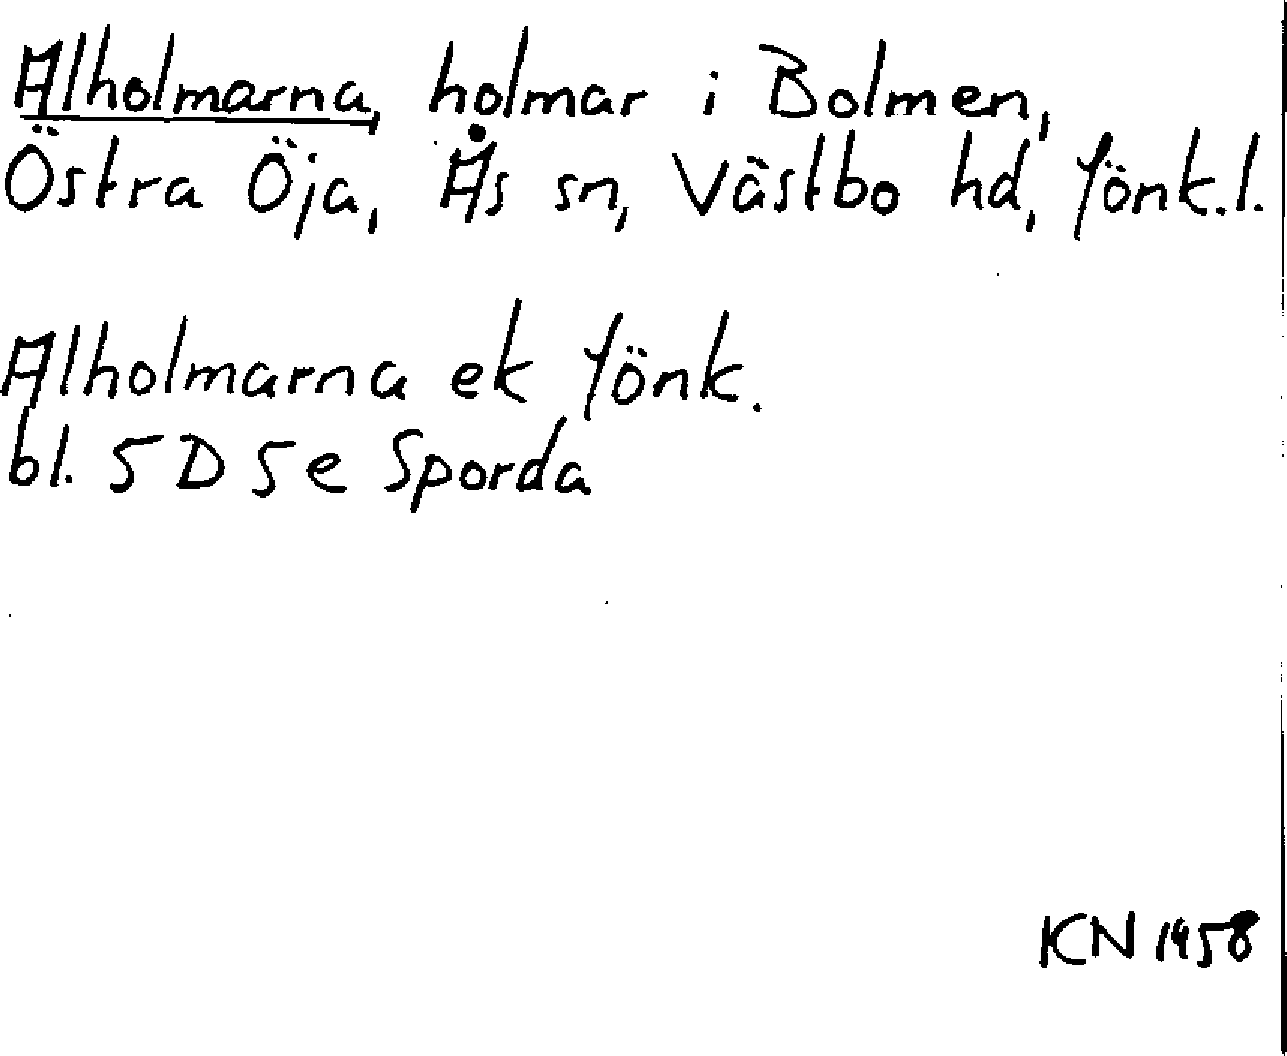 Alholmarna, holmar i Bolmen,
Östra Öja, Ås sn, Västbo hd, Jönk.l.
Alholmarna ek Jönk.
bl. 5 D 5 e Sporda
KN 1958